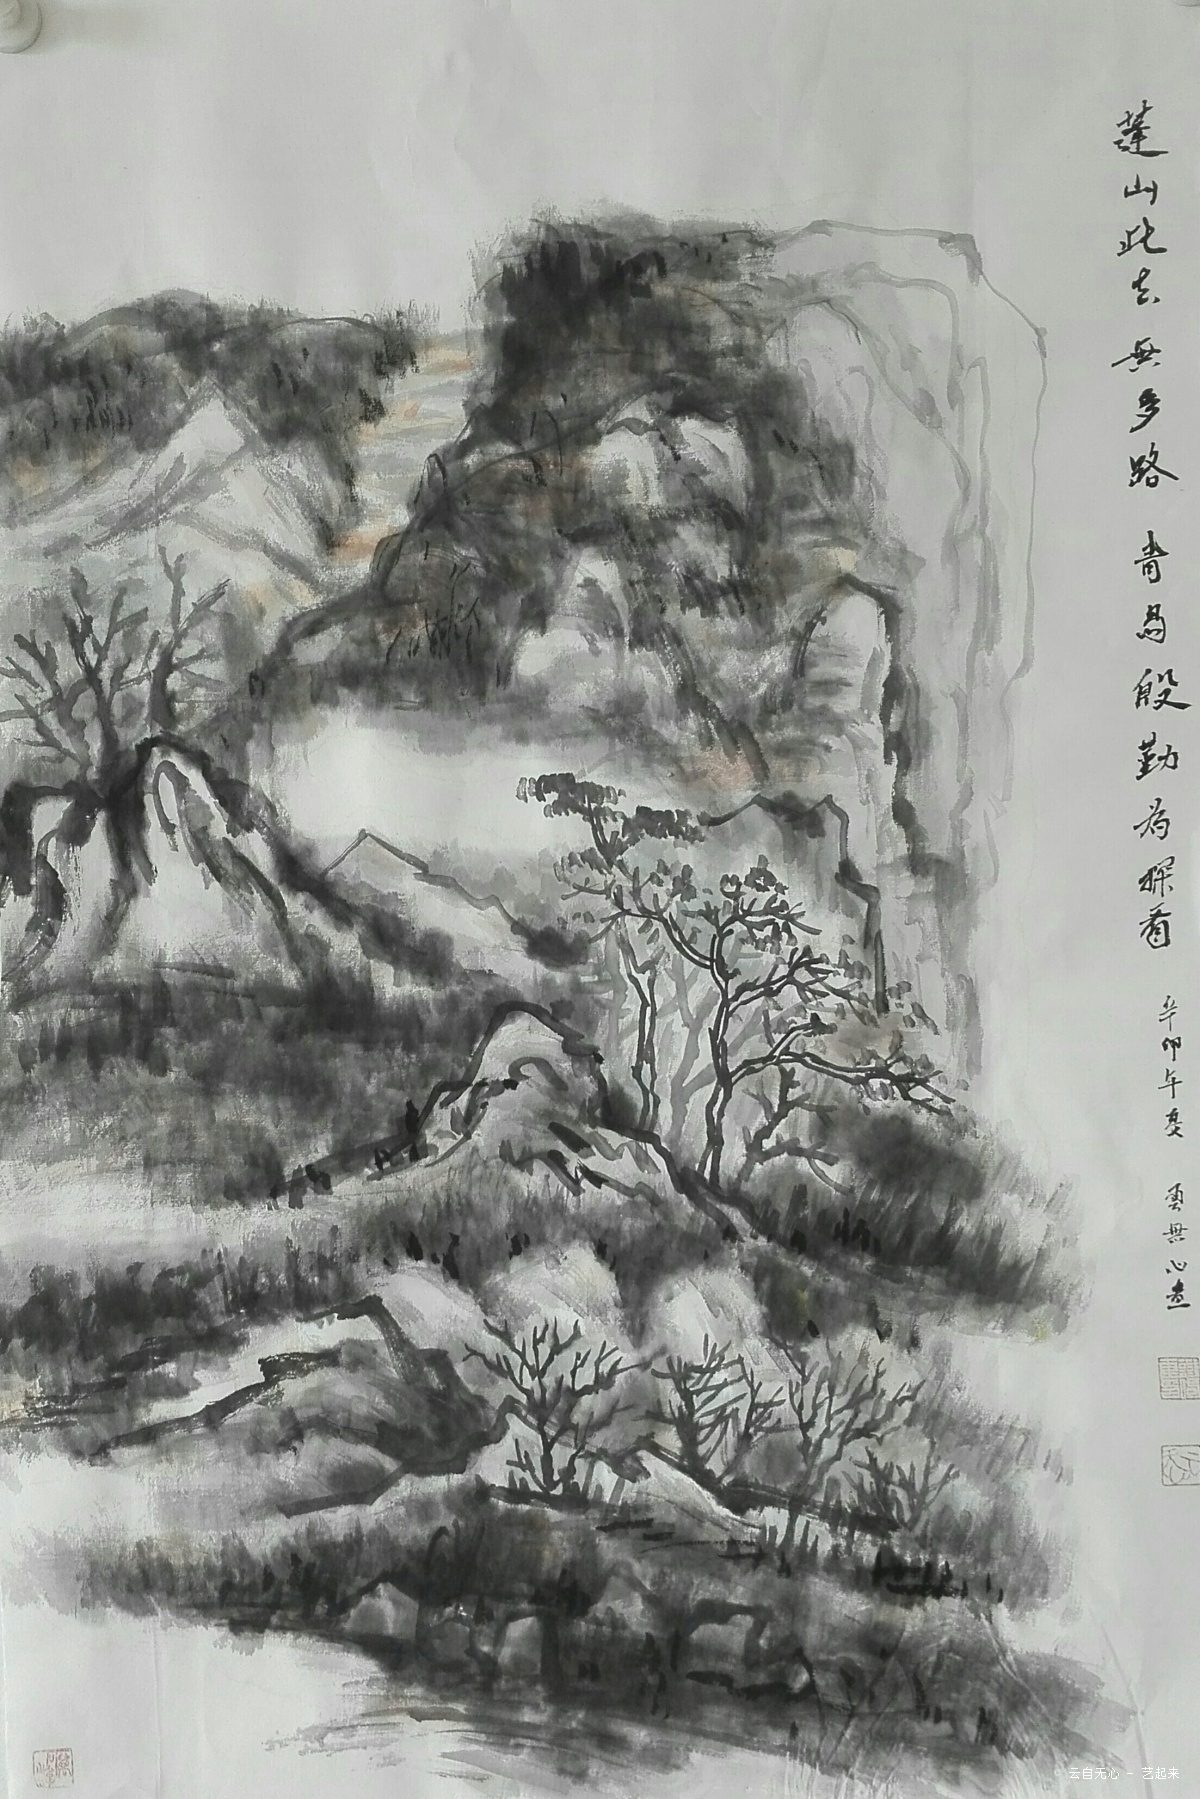 蓬山此去無多路 青鳥殷勤為探看
辛卯年夏 雲無心畫
云自无心 - 艺起来